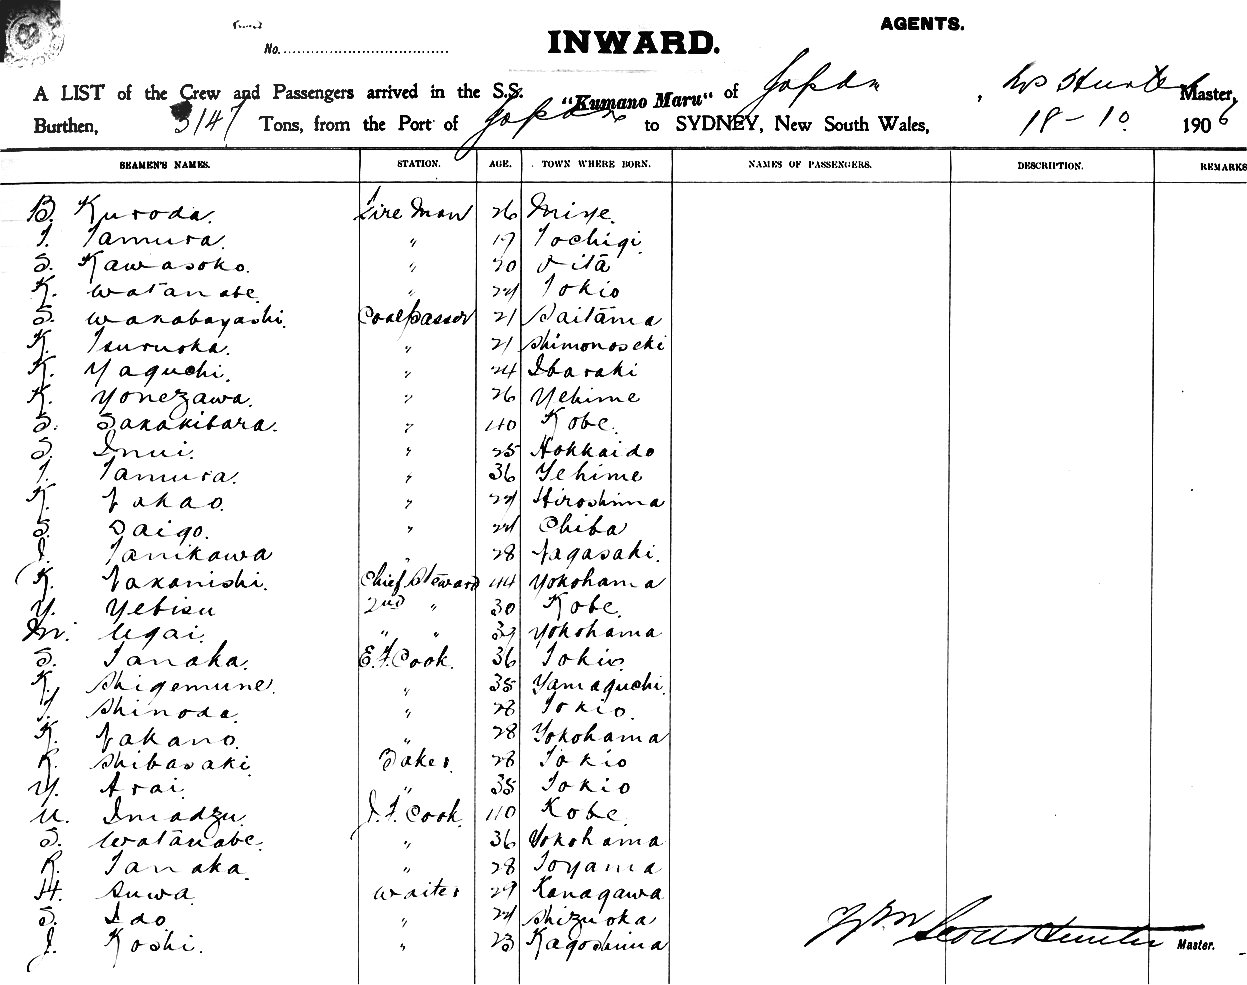 AGENTS.
No.
INWARD.
A LIST of the Crew and Passengers arrived in the S.S. "Kumano Maru" of Japan, Hunter Master,
Burthen, 3147 Tons, from the Port of Japan to SYDNEY, New South Wales, 18-10 1906
SEAMEN'S NAMES. STATION. AGE. TOWN WHERE BORN. NAMES OF PASSENGERS. DESCRIPTION. REMARKS
B. Kuroda. Fire Man 26 Miye.
T. Tamura. " 19 Tochigi
S. Kawasoko. " 20 Oita
K. Watanabe. " 24 Tokio
S. Wakabayashi. Coal passer 21 Saitama
K. Tsuruoka. " 21 Shimonoseki
K. Yaguchi. " 24 Ibaraki
K. Yonezawa. " 26 Yehime
S. Sakakibara. " 40 Kobe.
S. Inui. " 25 Hokkaido
T. Tamura. " 36 Yehime
K. Nakao. " 24 Hiroshima
S. Daigo. " 24 Chiba
J. Tanikawa " 28 Nagasaki.
K. Nakanishi. Chief Steward 44 Yokohama
Y. Yebisu 2nd " 30 Kobe.
M. Ugai. " " 39 Yokohama
S. Tanaka. E.F. Cook. 36 Tokio.
K. Shigemune. " 35 Yamaguchi.
T. Shinoda. " 28 Tokio.
K. Nakano. " 28 Yokohama
K. Shibasaki. Baker. 28 Tokio
Y. Arai. " 35 Tokio
U. Imadzu. J.F. Cook. 40 Kobe.
S. Watanabe. " 36 Yokohama
K. Tanaka. " 28 Toyama
H. Suwa. Waiter 29 Kanagawa
S. Ido. " 24 Shizuoka
J. Koshi. " 23 Kagoshima
Wm Scott Hunter Master.